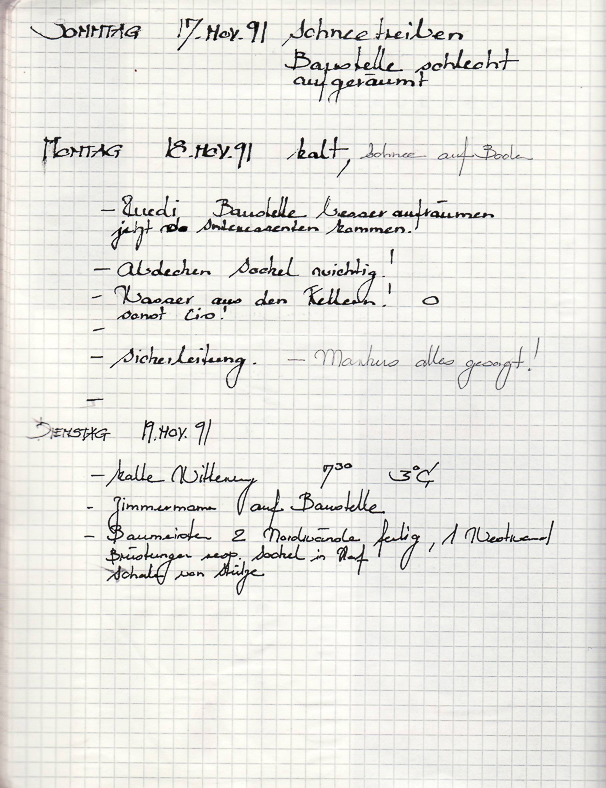 SONNTAG 17. NOV. 91 Schneetreiben
Baustelle schlecht
aufgeräumt
MONTAG 18. NOV. 91 kalt, Schnee auf Boden
- Ruedi Baustelle besser aufräumen
jetzt da Interessenten kommen!
- Abdecken Sockel wichtig!
- Wasser aus den Kellern! O
sonst Eis!
-
- Sickerleitung. - Markus alles gesagt!
-
DIENSTAG 19. NOV. 91
- kalte Witterung 7³⁰ 3°C
- Zimmermann auf Baustelle
- Baumeister 2 Nordwände fertig, 1 Westwand
Brüstungen resp. Sockel in
von Stütze